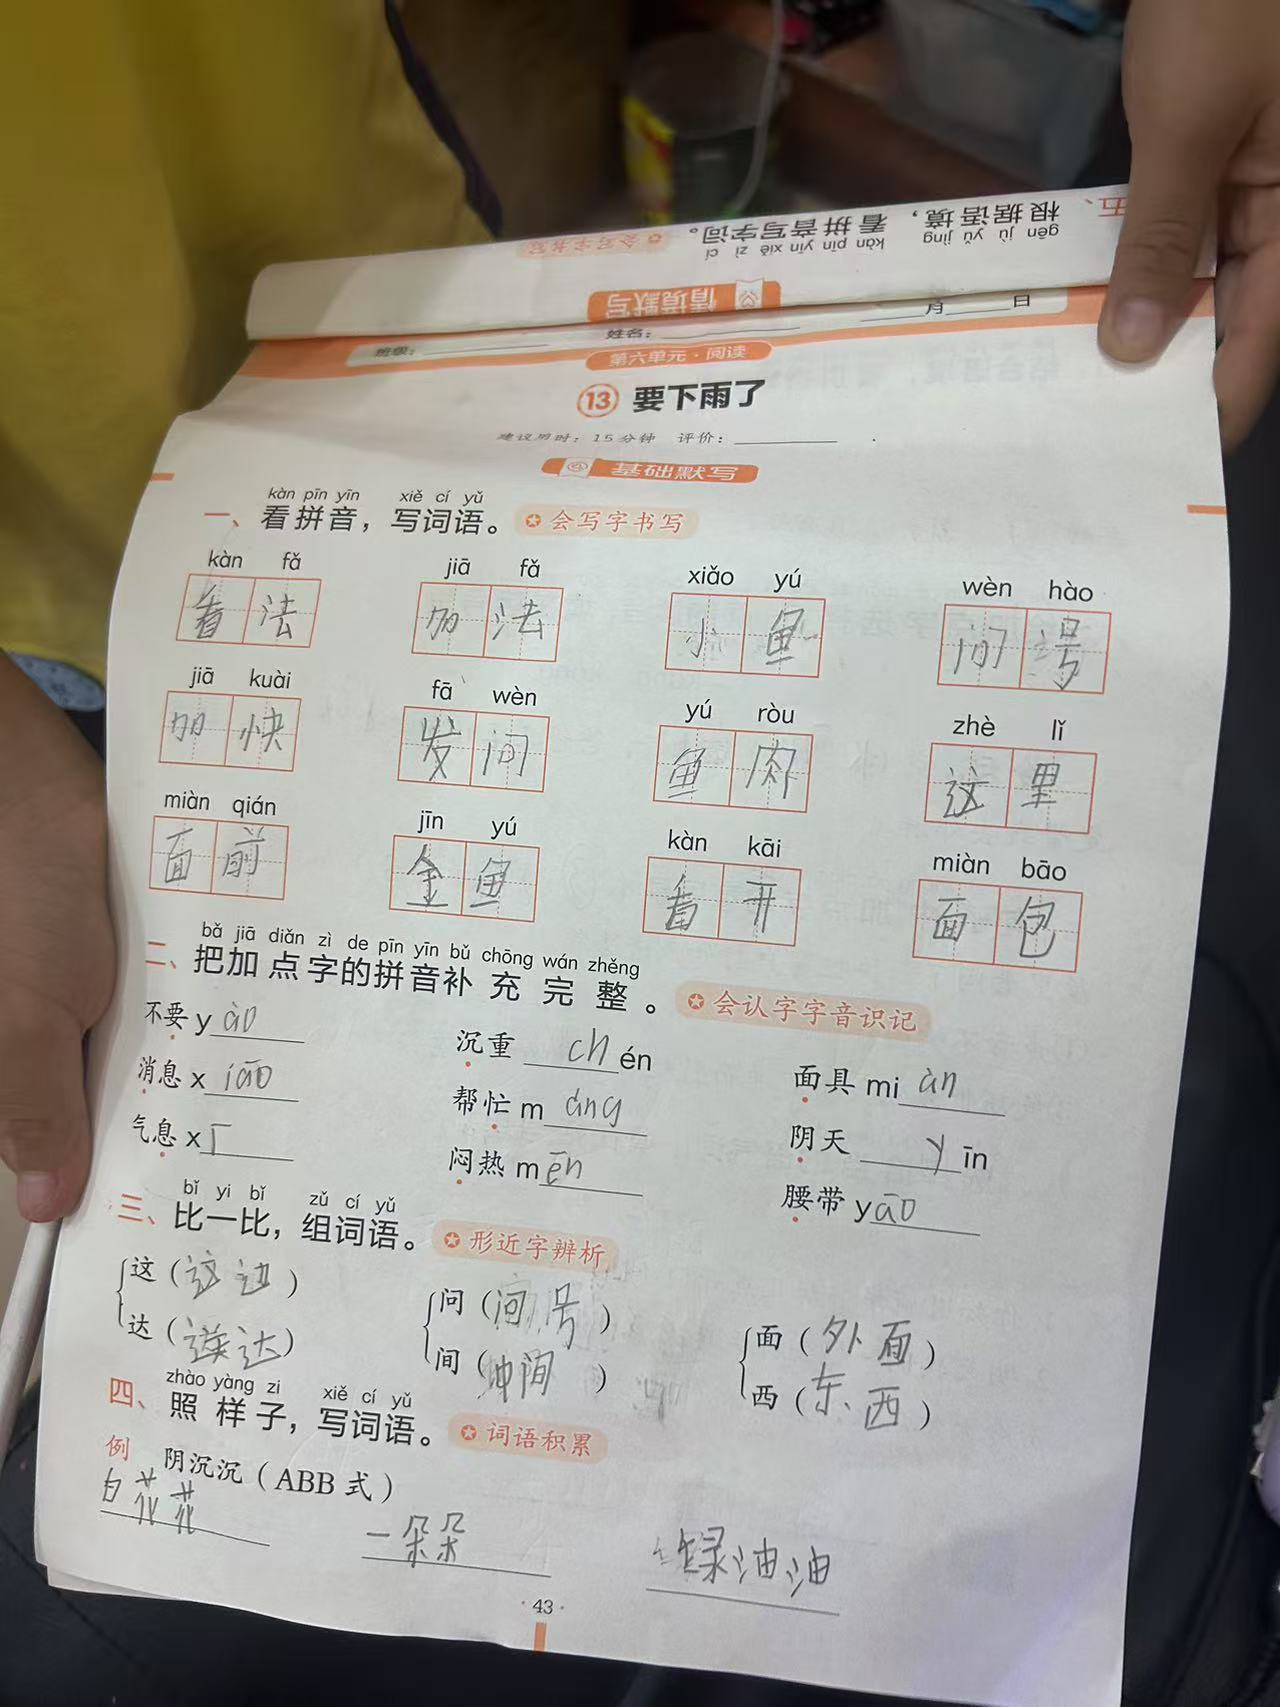 五、根据语境，看拼音写字词。 会写字书写
gēn jù yǔ jìng kàn pīn yīn xiě zì cí
情境默写
班级： 姓名： 月 日
第六单元·阅读
13 要下雨了
建议用时：15分钟 评价：
基础默写
kàn pīn yīn xiě cí yǔ
一、看拼音，写词语。 会写字书写
kàn fǎ jiā fǎ xiǎo yú wèn hào
看法 加法 小鱼 问号
jiā kuài fā wèn yú ròu zhè lǐ
加快 发问 鱼肉 这里
miàn qián jīn yú kàn kāi miàn bāo
面前 金鱼 看开 面包
bǎ jiā diǎn zì de pīn yīn bǔ chōng wán zhěng
二、把加点字的拼音补充完整。 会认字字音识记
不要 yào 沉重 chén 面具 miàn
消息 xiāo 帮忙 máng 阴天 yīn
气息 xī 闷热 mēn 腰带 yāo
bǐ yi bǐ zǔ cí yǔ
三、比一比，组词语。 形近字辨析
这（这边） 问（问号） 面（外面）
达（送达） 间（中间） 西（东西）
zhào yàng zi xiě cí yǔ
四、照样子，写词语。 词语积累
例 阴沉沉（ABB式）
白花花 一朵朵 绿油油
·43·